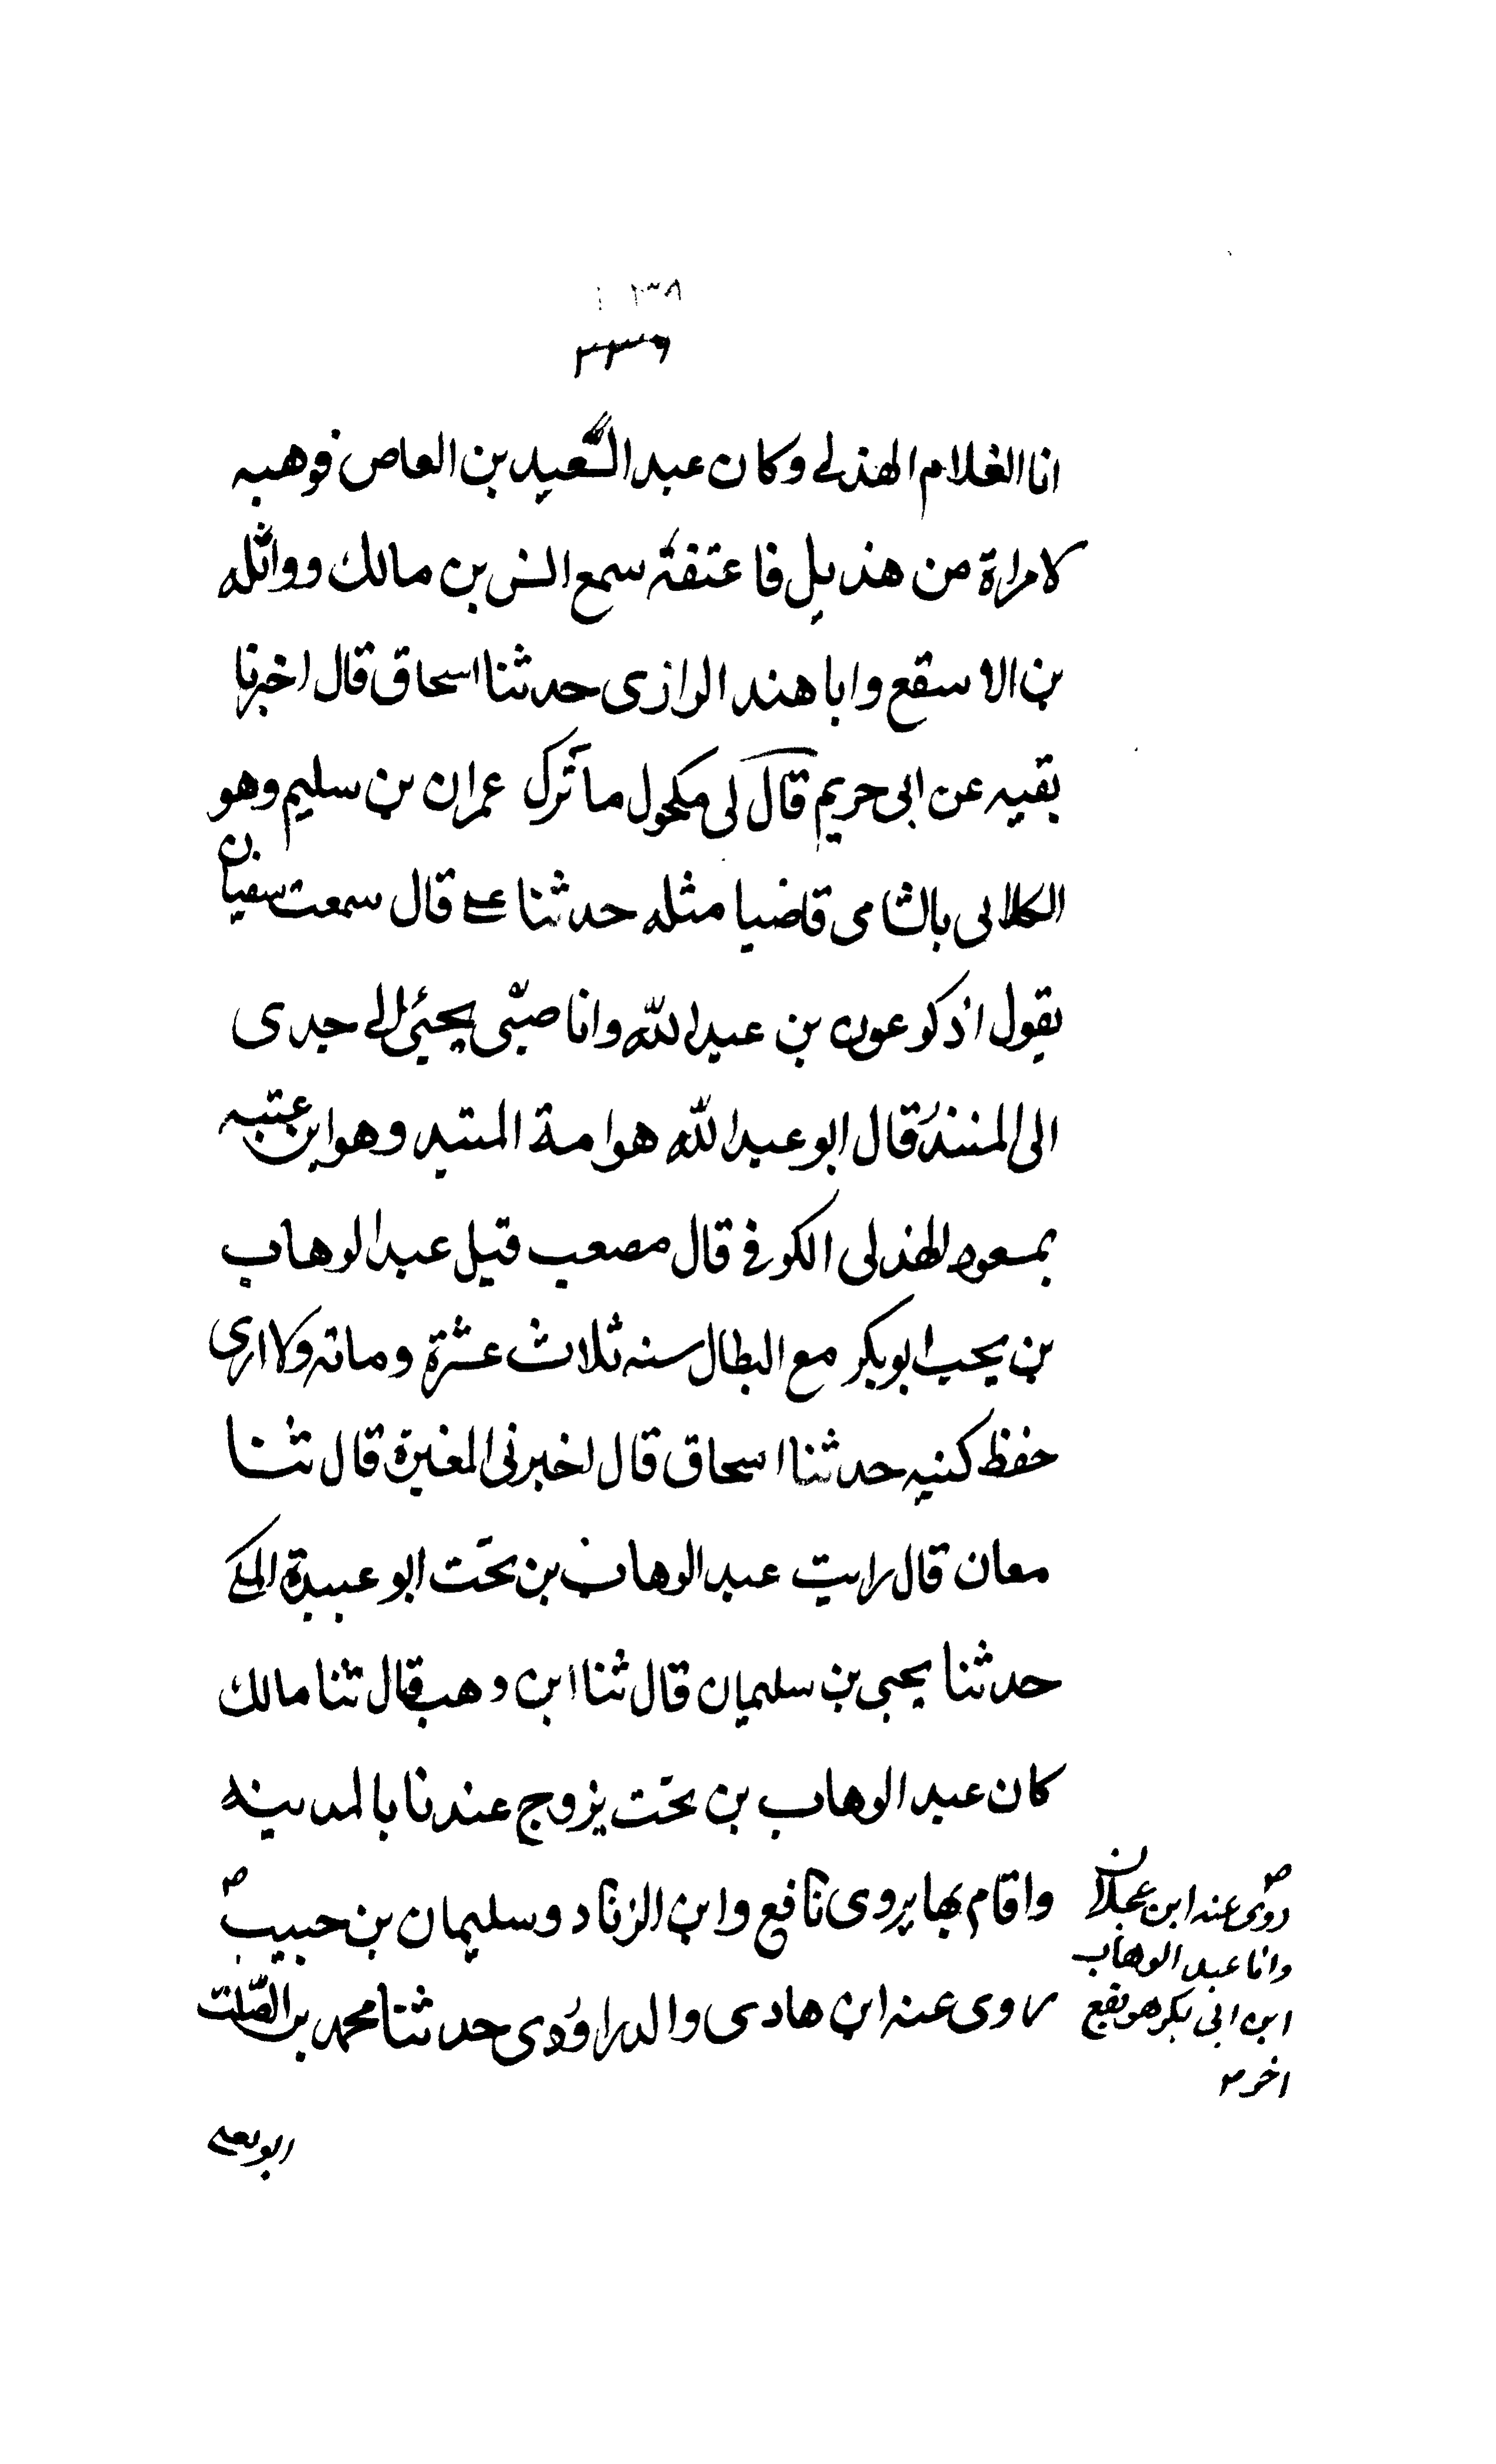 ٢٣٨
٢٣٩
انا الغلام الهذلى وكان عبد السعيد بن العاص فوهبه
لامراة من هذيل فاعتقته سمع انس بن مالك وواثله
بن الاسقع وابا هند الرازى حدثنا اسحاق قال اخبرنا
بقيه عن ابى حريم قال لى مكحول ما ترك عمران بن سليم وهو
الكلابى بالشامى قاضيا مثله حدثنا على قال سمعت سفيان
يقول اذكر عون بن عبدالله وانا صبى يجيئ الى جدى
الى المنند قال ابو عبدالله هو امة المتيد وهو ابن عتبه
بمسعود الهذلى الكوفى قال مصعب قتيل عبد الوهاب
بن يحب ابوبكر مع البطال سنه ثلاث عشرة ومائه ولا ارى
حفظ كنيه حدثنا اسحاق قال اخبرنى المغيرة قال ثنا
معان قال رايت عبد الوهاب بن بخت ابو عبيدة المكى
حدثنا يحيى بن سليمان قال ثنا ابن وهب قال ثنا مالك
كان عبد الوهاب بن بخت يزوج عندنا بالمدينه
واقام بها يروى نافع وابن الزناد وسليمان بن حبيب
روى عنه ابن هادى والدراوردى حدثنا محمد بن الصلت
روى عنه ابن عجلان
وانا عبد الوهاب
ابن ابى بكر هو نفيع
اخر
ابويعلى